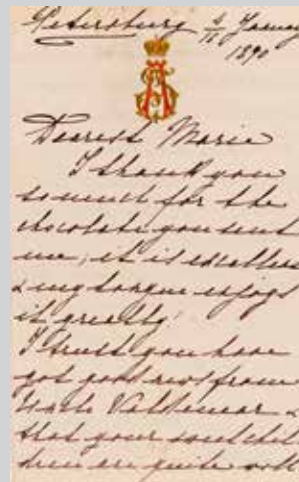 Petersburg 4/16 January
1890
Dearest Marie
I thank you
so much for the
chocolate you sent
me, it is excellent
& my tongue enjoys
it greatly!
I trust you have
got good news from
Uncle Valdemar &
that your sweet chil
dren are quite well